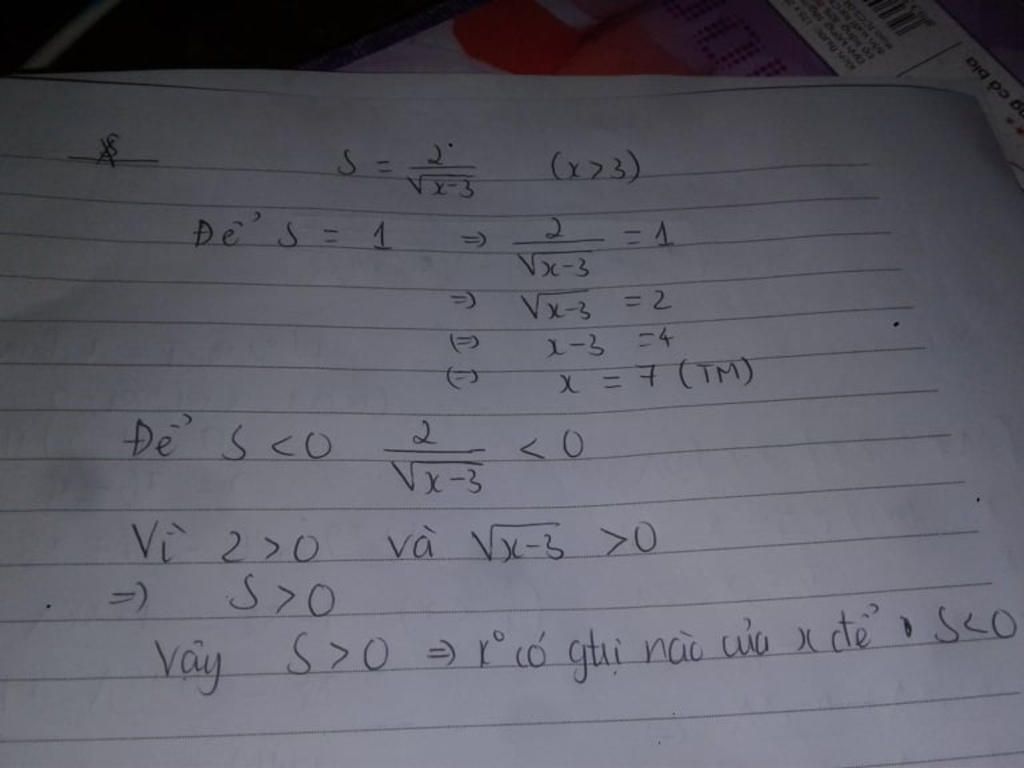 S = 2/√x-3 (x>3)
Để S = 1 => 2/√x-3 = 1
=> √x-3 = 2
(=) x-3 =4
(=) x = 7 (TM)
Để S < 0 2/√x-3 < 0
Vì 2 > 0 và √x-3 > 0
=) S > 0
Vậy S > 0 => k° có gtrị nào của x để S < 0